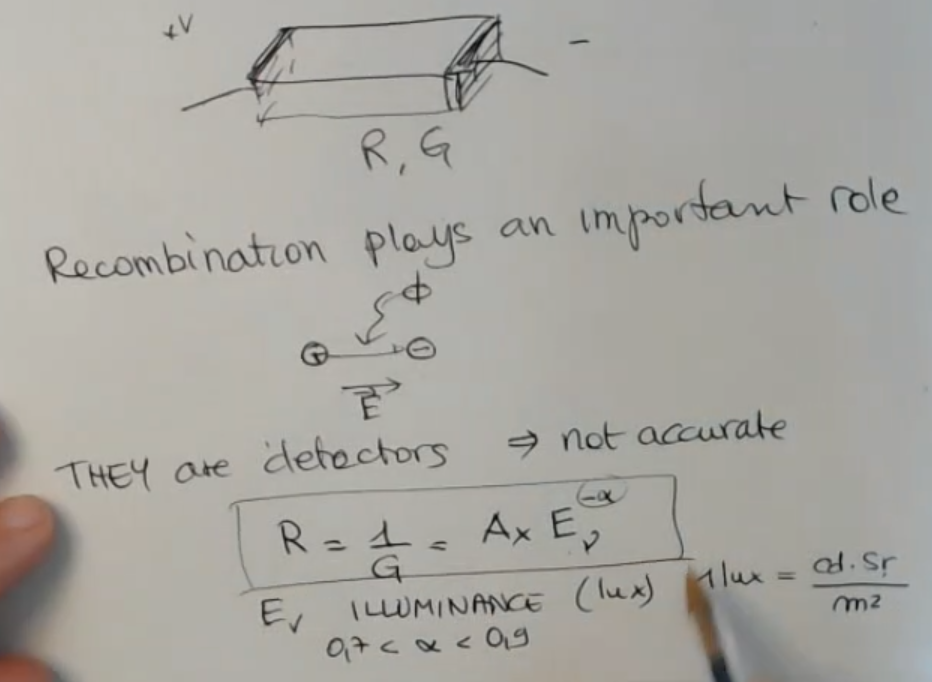 +V -
R, G
Recombination plays an important role
ϕ
+ -
E
THEY are detectors ⇒ not accurate
R = 1/G = A x Eᵥ^-α
Eᵥ ILLUMINANCE (lux) 1 lux = cd.sr/m²
0,7 < α < 0,9